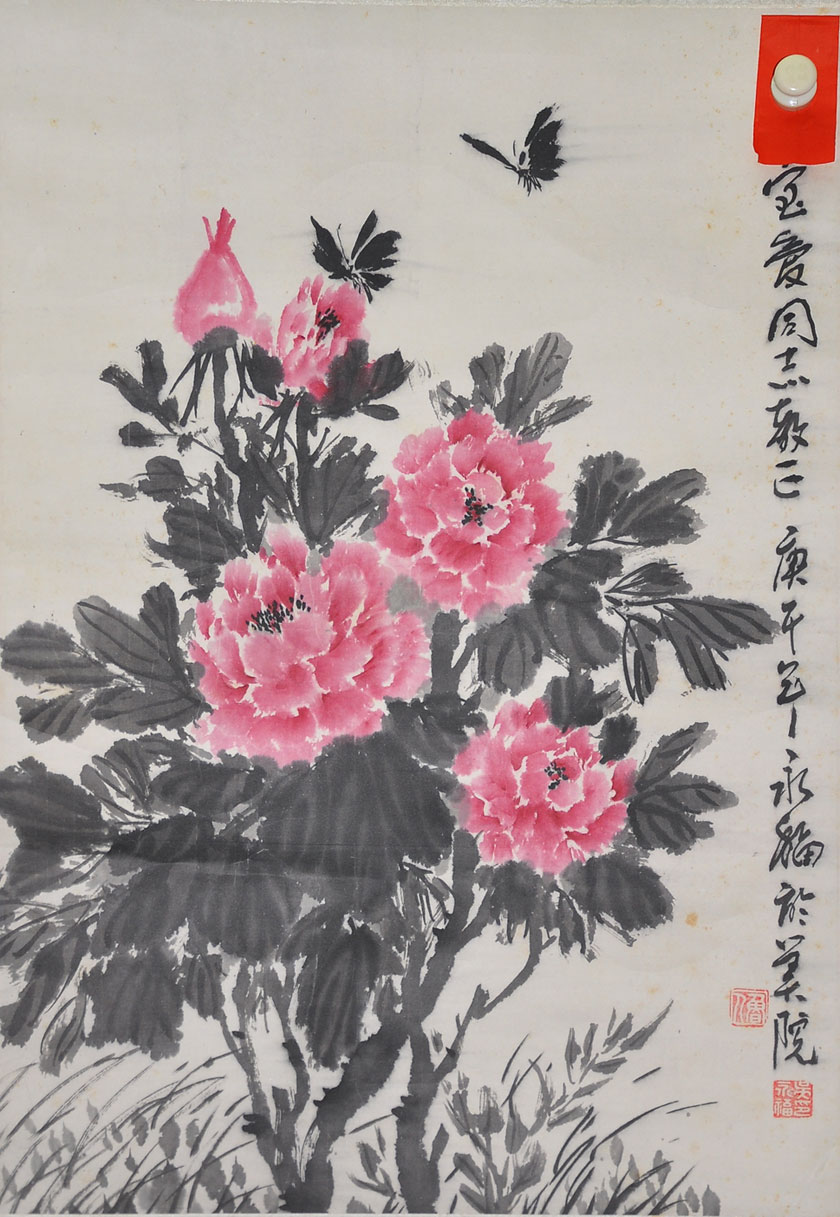 宝爱同志教正 庚午年永福於美院
魯人
吴永福印